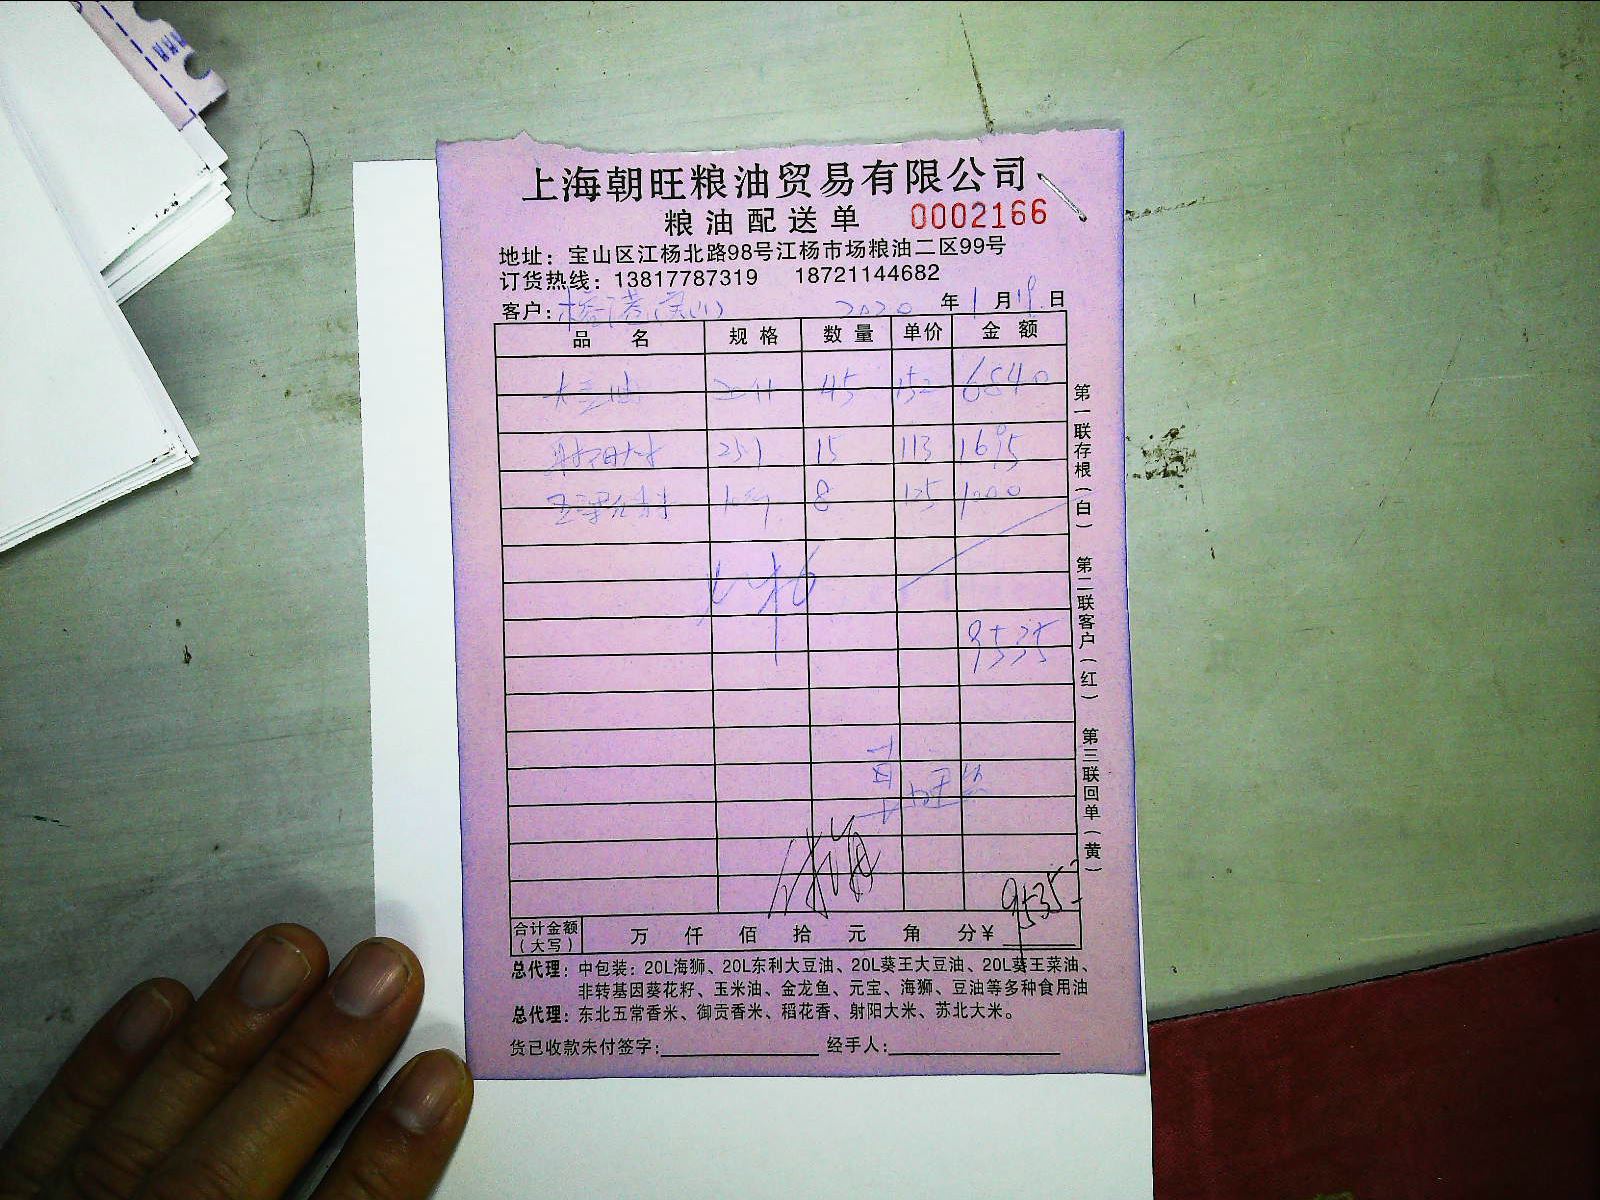 上海朝旺粮油贸易有限公司
粮油配送单 0002166
地址：宝山区江杨北路98号江杨市场粮油二区99号
订货热线：13817787319 18721144682
客户： 2020 年 1 月 19 日
品名 规格 数量 单价 金额
大豆油 45 152 6840
射阳大米 15 113 1695
8 125 1000
9535
9535
合计金额（大写） 万 仟 佰 拾 元 角 分￥
总代理：中包装：20L海狮、20L东利大豆油、20L葵王大豆油、20L葵王菜油、
非转基因葵花籽、玉米油、金龙鱼、元宝、海狮、豆油等多种食用油
总代理：东北五常香米、御贡香米、稻花香、射阳大米、苏北大米。
货已收款未付签字： 经手人：
第一联存根（白）
第二联客户（红）
第三联回单（黄）